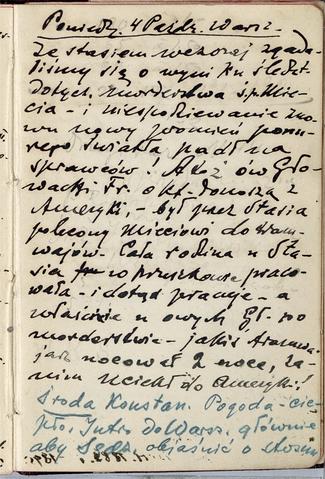 Poniedz. 4 Paźdz. Warsz.
Ze Stasiem wczoraj zgada-
liśmy się o wyniku śledzt.
dotycz. morderstwa ś.p. Mie-
cia - i niespodziewanie zno-
wu nowy promień ponu-
rego światła padł na
sprawców! Otóż ów Gło-
wacki Fr. o kt. donoszą z
Ameryki, - był przez Stasia
polecony Mieciowi do tram-
wajów. Cała rodzina u Sta-
sia w Pruszkowie praco-
wała - i dotąd pracuje - a
właśnie u owych Gł. po
morderstwie - jakiś
nocował 2 noce, za-
nim uciekł do Ameryki!
Środa Konstan. Pogoda - cie-
pło. Jutro do Warsz. głównie
aby Sędz. objaśnić o stosun